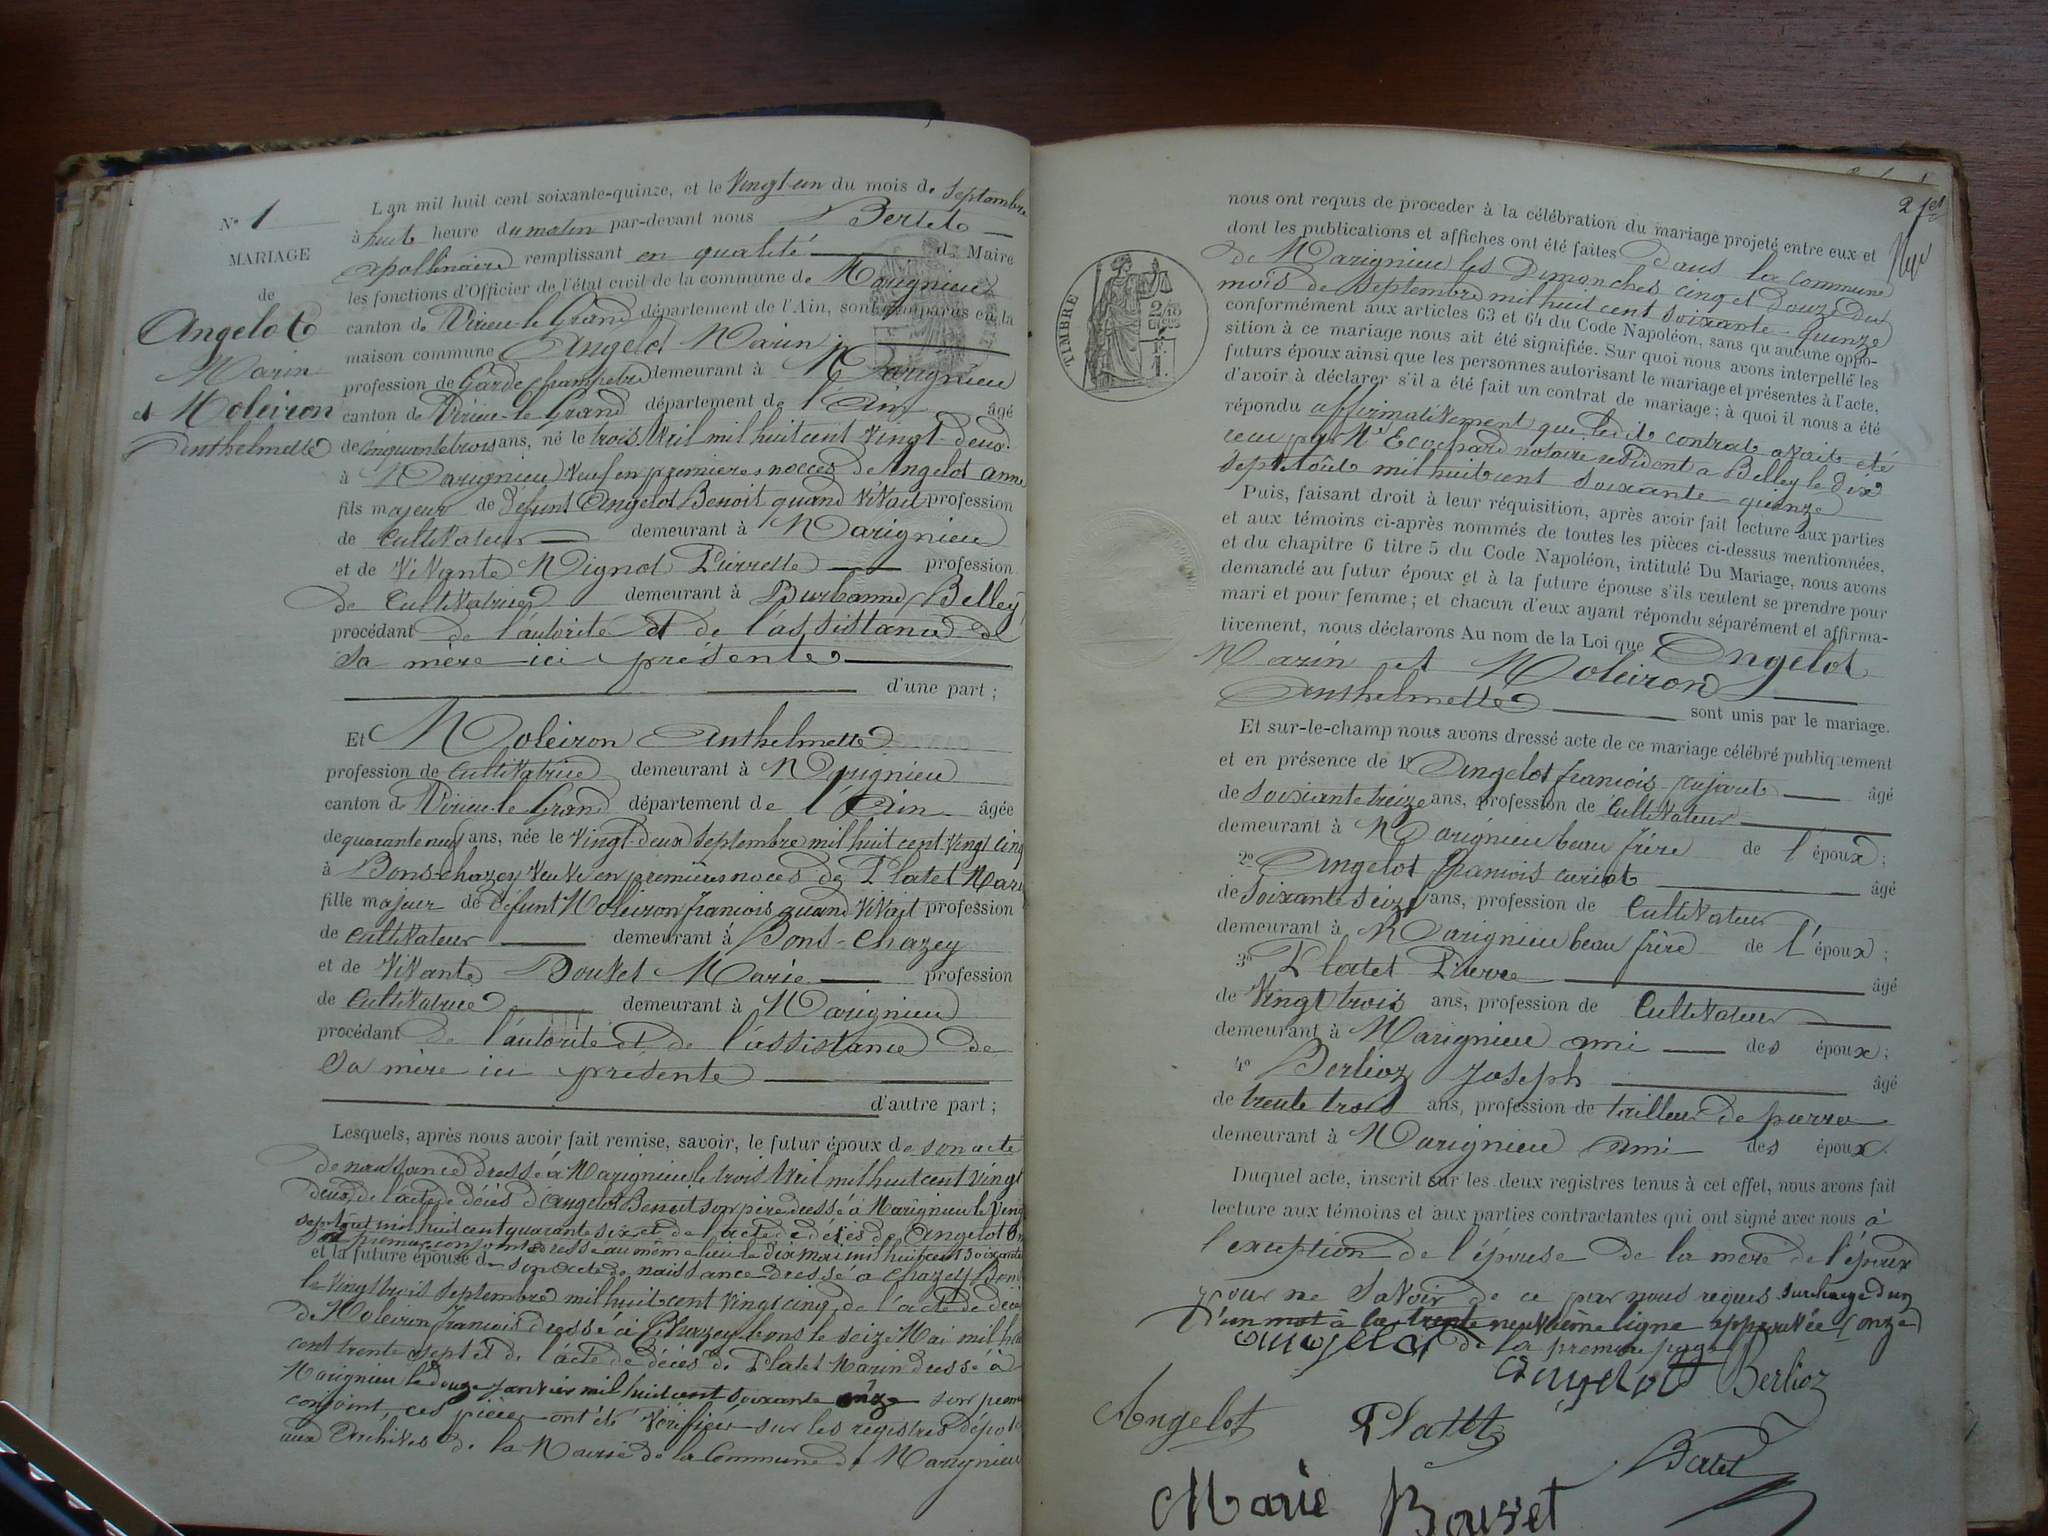 N° 1
MARIAGE
de
Angelot
Marin
et Moleiron
Anthelmette
L'an mil huit cent soixante-quinze, et le Vingt un du mois de Septembre
à huit heure du matin par-devant nous Bertet
Apollinaire remplissant en qualité de Maire
les fonctions d'Officier de l'état civil de la commune de Marignieu
canton de Virieu-le-Grand département de l'Ain, sont comparus en la
maison commune Angelot Marin
profession de Garde Champetre demeurant à Marignieu
canton de Virieu-le-Grand département de l'Ain âgé
de cinquante trois ans, né le trois Avril mil huit cent vingt-deux
à Marignieu Veuf en premieres noces de Angelot anne
fils majeur de défunt Angelot Benoit quand vivait profession
de Cultivateur demeurant à Marignieu
et de Vivante Mignot Pierrette profession
de Cultivatrice demeurant à Burbanne, Belley
procédant de l'autorité et de l'assistance de
sa mère ici présente
d'une part ;
Et Moleiron Anthelmette
profession de Cultivatrice demeurant à Marignieu
canton de Virieu-le-Grand département de l'Ain âgée
de quarante neuf ans, née le Vingt-deux Septembre mil huit cent vingt cinq
à Bons-Chazey Veuve en premières noces de Platet Marin
fille majeur de défunt Moleiron françois quand vivait profession
de Cultivateur demeurant à Bons-Chazey
et de Vivante Bouvet Marie profession
de Cultivatrice demeurant à Marignieu
procédant de l'autorité et de l'assistance de
Sa mère ici présente
d'autre part ;
Lesquels, après nous avoir fait remise, savoir, le futur époux de son acte
de naissance dressé à Marignieu le trois Avril mil huit cent vingt
deux, de l'acte de décès d'Angelot Benoit son père dressé à Marignieu le Vingt
sept Aout mil huit cent quarante six et de l'acte de décès de Angelot
sa premiere conjointe dressé au même lieu le dix Mai mil huit cent soixante
et la future épouse de son acte de naissance dressé à Chazey Bons
le Vingt trois Septembre mil huit cent vingt cinq, de l'acte de décès
de Moleiron françois dressé à Chazey Bons le seize Mai mil huit
cent trente sept et de l'acte de décès de Platet Marin dressé à
Marignieu le douze Janvier mil huit cent soixante onze son premier
conjoint, ces pièces ont été Vérifiées sur les registres déposés
aux Archives de la Mairie de la Commune de Marignieu
2
TIMBRE
nous ont requis de proceder à la célébration du mariage projeté entre eux et
dont les publications et affiches ont été faites dans la commune
de Marignieu les Dimanches cinq et Douze du
mois de Septembre mil huit cent soixante-quinze
conformément aux articles 63 et 64 du Code Napoléon, sans qu'aucune oppo-
sition à ce mariage nous ait été signifiée. Sur quoi nous avons interpellé les
futurs époux ainsi que les personnes autorisant le mariage et présentes à l'acte,
d'avoir à déclarer s'il a été fait un contrat de mariage ; à quoi il nous a été
répondu affirmativement que ledit contrat avait été
recu par Me Ecochard notaire résidant a Belley le dix
sept Août mil huit cent soixante-quinze
Puis, faisant droit à leur réquisition, après avoir fait lecture aux parties
et aux témoins ci-après nommés de toutes les pièces ci-dessus mentionnées,
et du chapitre 6 titre 5 du Code Napoléon, intitulé Du Mariage, nous avons
demandé au futur époux et à la future épouse s'ils veulent se prendre pour
mari et pour femme ; et chacun d'eux ayant répondu séparément et affirma-
tivement, nous déclarons Au nom de la Loi que Angelot
Marin et Moleiron
Anthelmette sont unis par le mariage.
Et sur-le-champ nous avons dressé acte de ce mariage célébré publiquement
et en présence de 1° Angelot françois âgé
de soixante treize ans, profession de Cultivateur
demeurant à Marignieu beau frère de l'époux ;
2° Angelot françois âgé
de soixante seize ans, profession de Cultivateur
demeurant à Marignieu beau frère de l'époux ;
3° Platet Pierre âgé
de Vingt trois ans, profession de Cultivateur
demeurant à Marignieu ami des époux ;
4° Berlioz Joseph âgé
de trente trois ans, profession de tailleur de pierre
demeurant à Marignieu ami des époux.
Duquel acte, inscrit sur les deux registres tenus à cet effet, nous avons fait
lecture aux témoins et aux parties contractantes qui ont signé avec nous à
l'exception de l'épouse de la mere de l'époux
pour ne savoir de ce par nous requis surcharge d'un
d'un mot à la trente neuvième ligne approuvée (onze)
de la premiere page
angelot
Angelot
Berlioz
Angelot
Platet
Bertet
Marie Bouvet